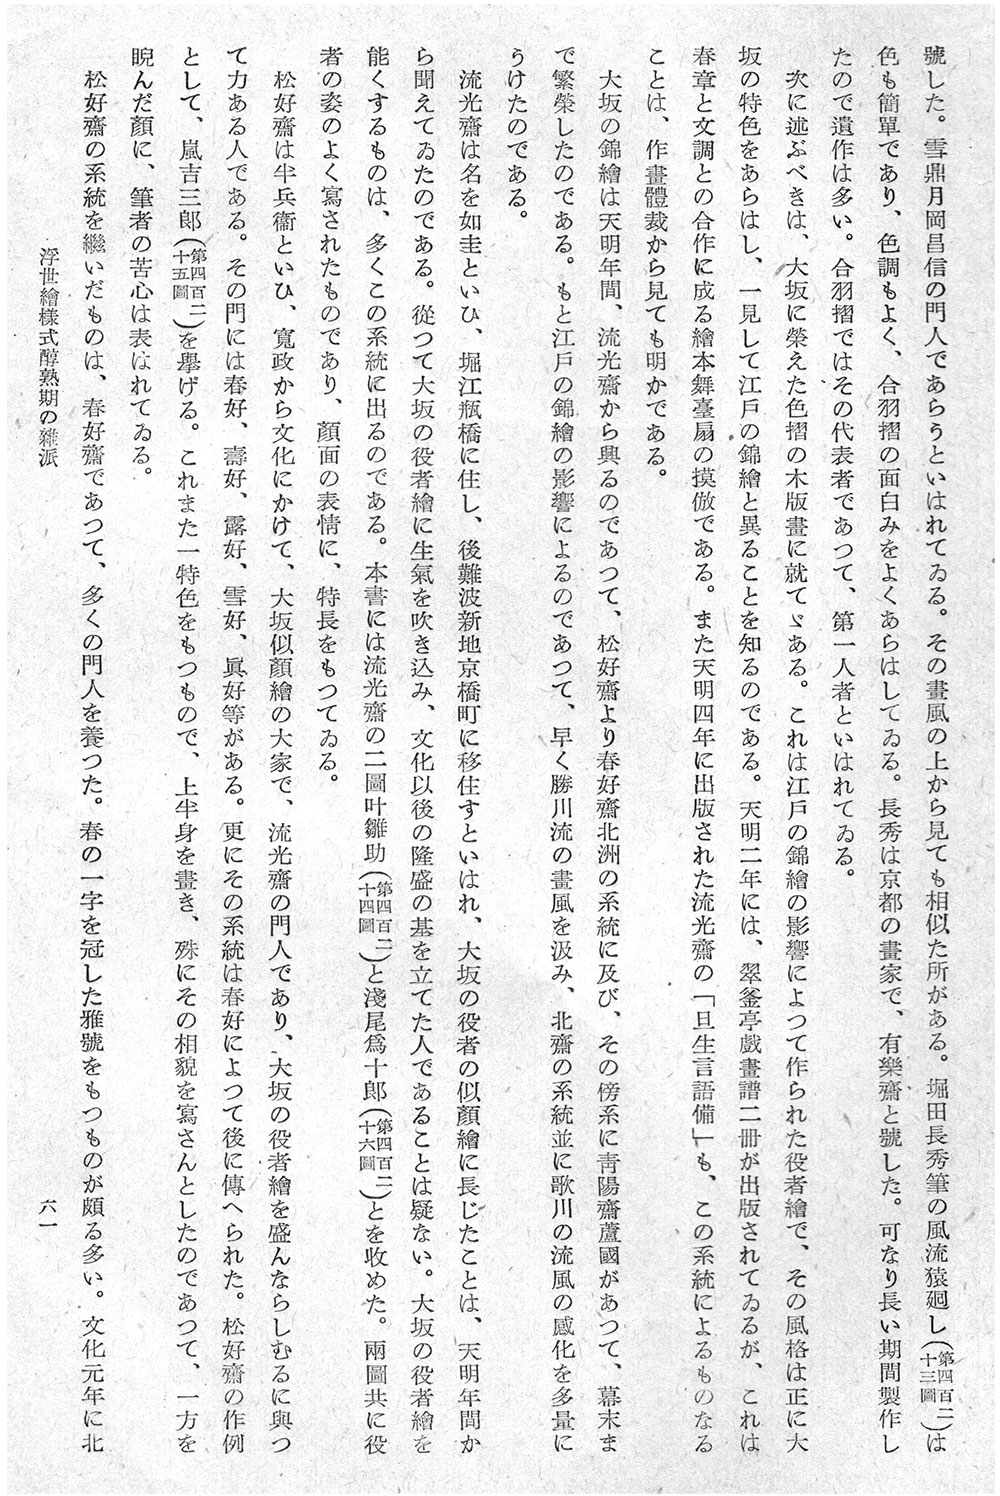 號した。雪鼎月岡昌信の門人であらうといはれてゐる。その畫風の上から見ても相似た所がある。堀田長秀筆の風流猿廻し(第四百二十三圖)は
色も簡單であり、色調もよく、合羽摺の面白みをよくあらはしてゐる。長秀は京都の畫家で、有樂齋と號した。可なり長い期間製作し
たので遺作は多い。合羽摺ではその代表者であつて、第一人者といはれてゐる。
次に述ぶべきは、大坂に榮えた色摺の木版畫に就てゞある。これは江戸の錦繪の影響によつて作られた役者繪で、その風格は正に大
坂の特色をあらはし、一見して江戸の錦繪と異ることを知るのである。天明二年には、翠釜亭戲畫譜二冊が出版されてゐるが、これは
春章と文調との合作に成る繪本舞臺扇の摸倣である。また天明四年に出版された流光齋の「旦生言語備」も、この系統によるものなる
ことは、作畫體裁から見ても明かである。
大坂の錦繪は天明年間、流光齋から興るのであつて、松好齋より春好齋北洲の系統に及び、その傍系に靑陽齋蘆國があつて、幕末ま
で繁榮したのである。もと江戸の錦繪の影響によるのであつて、早く勝川流の畫風を汲み、北齋の系統並に歌川の流風の感化を多量に
うけたのである。
流光齋は名を如圭といひ、堀江瓶橋に住し、後難波新地京橋町に移住すといはれ、大坂の役者の似顏繪に長じたことは、天明年間か
ら聞えてゐたのである。從つて大坂の役者繪に生氣を吹き込み、文化以後の隆盛の基を立てた人であることは疑ない。大坂の役者繪を
能くするものは、多くこの系統に出るのである。本書には流光齋の二圖叶雛助(第四百二十四圖)と淺尾爲十郞(第四百二十六圖)とを收めた。兩圖共に役
者の姿のよく寫されたものであり、顏面の表情に、特長をもつてゐる。
松好齋は半兵衞といひ、寬政から文化にかけて、大坂似顏繪の大家で、流光齋の門人であり、大坂の役者繪を盛んならしむるに與つ
て力ある人である。その門には春好、壽好、露好、雪好、眞好等がある。更にその系統は春好によつて後に傳へられた。松好齋の作例
として、嵐吉三郞(第四百二十五圖)を擧げる。これまた一特色をもつもので、上半身を畫き、殊にその相貌を寫さんとしたのであつて、一方を
睨んだ顏に、筆者の苦心は表はれてゐる。
松好齋の系統を繼いだものは、春好齋であつて、多くの門人を養つた。春の一字を冠した雅號をもつものが頗る多い。文化元年に北
浮世繪樣式醇熟期の雜派
六一